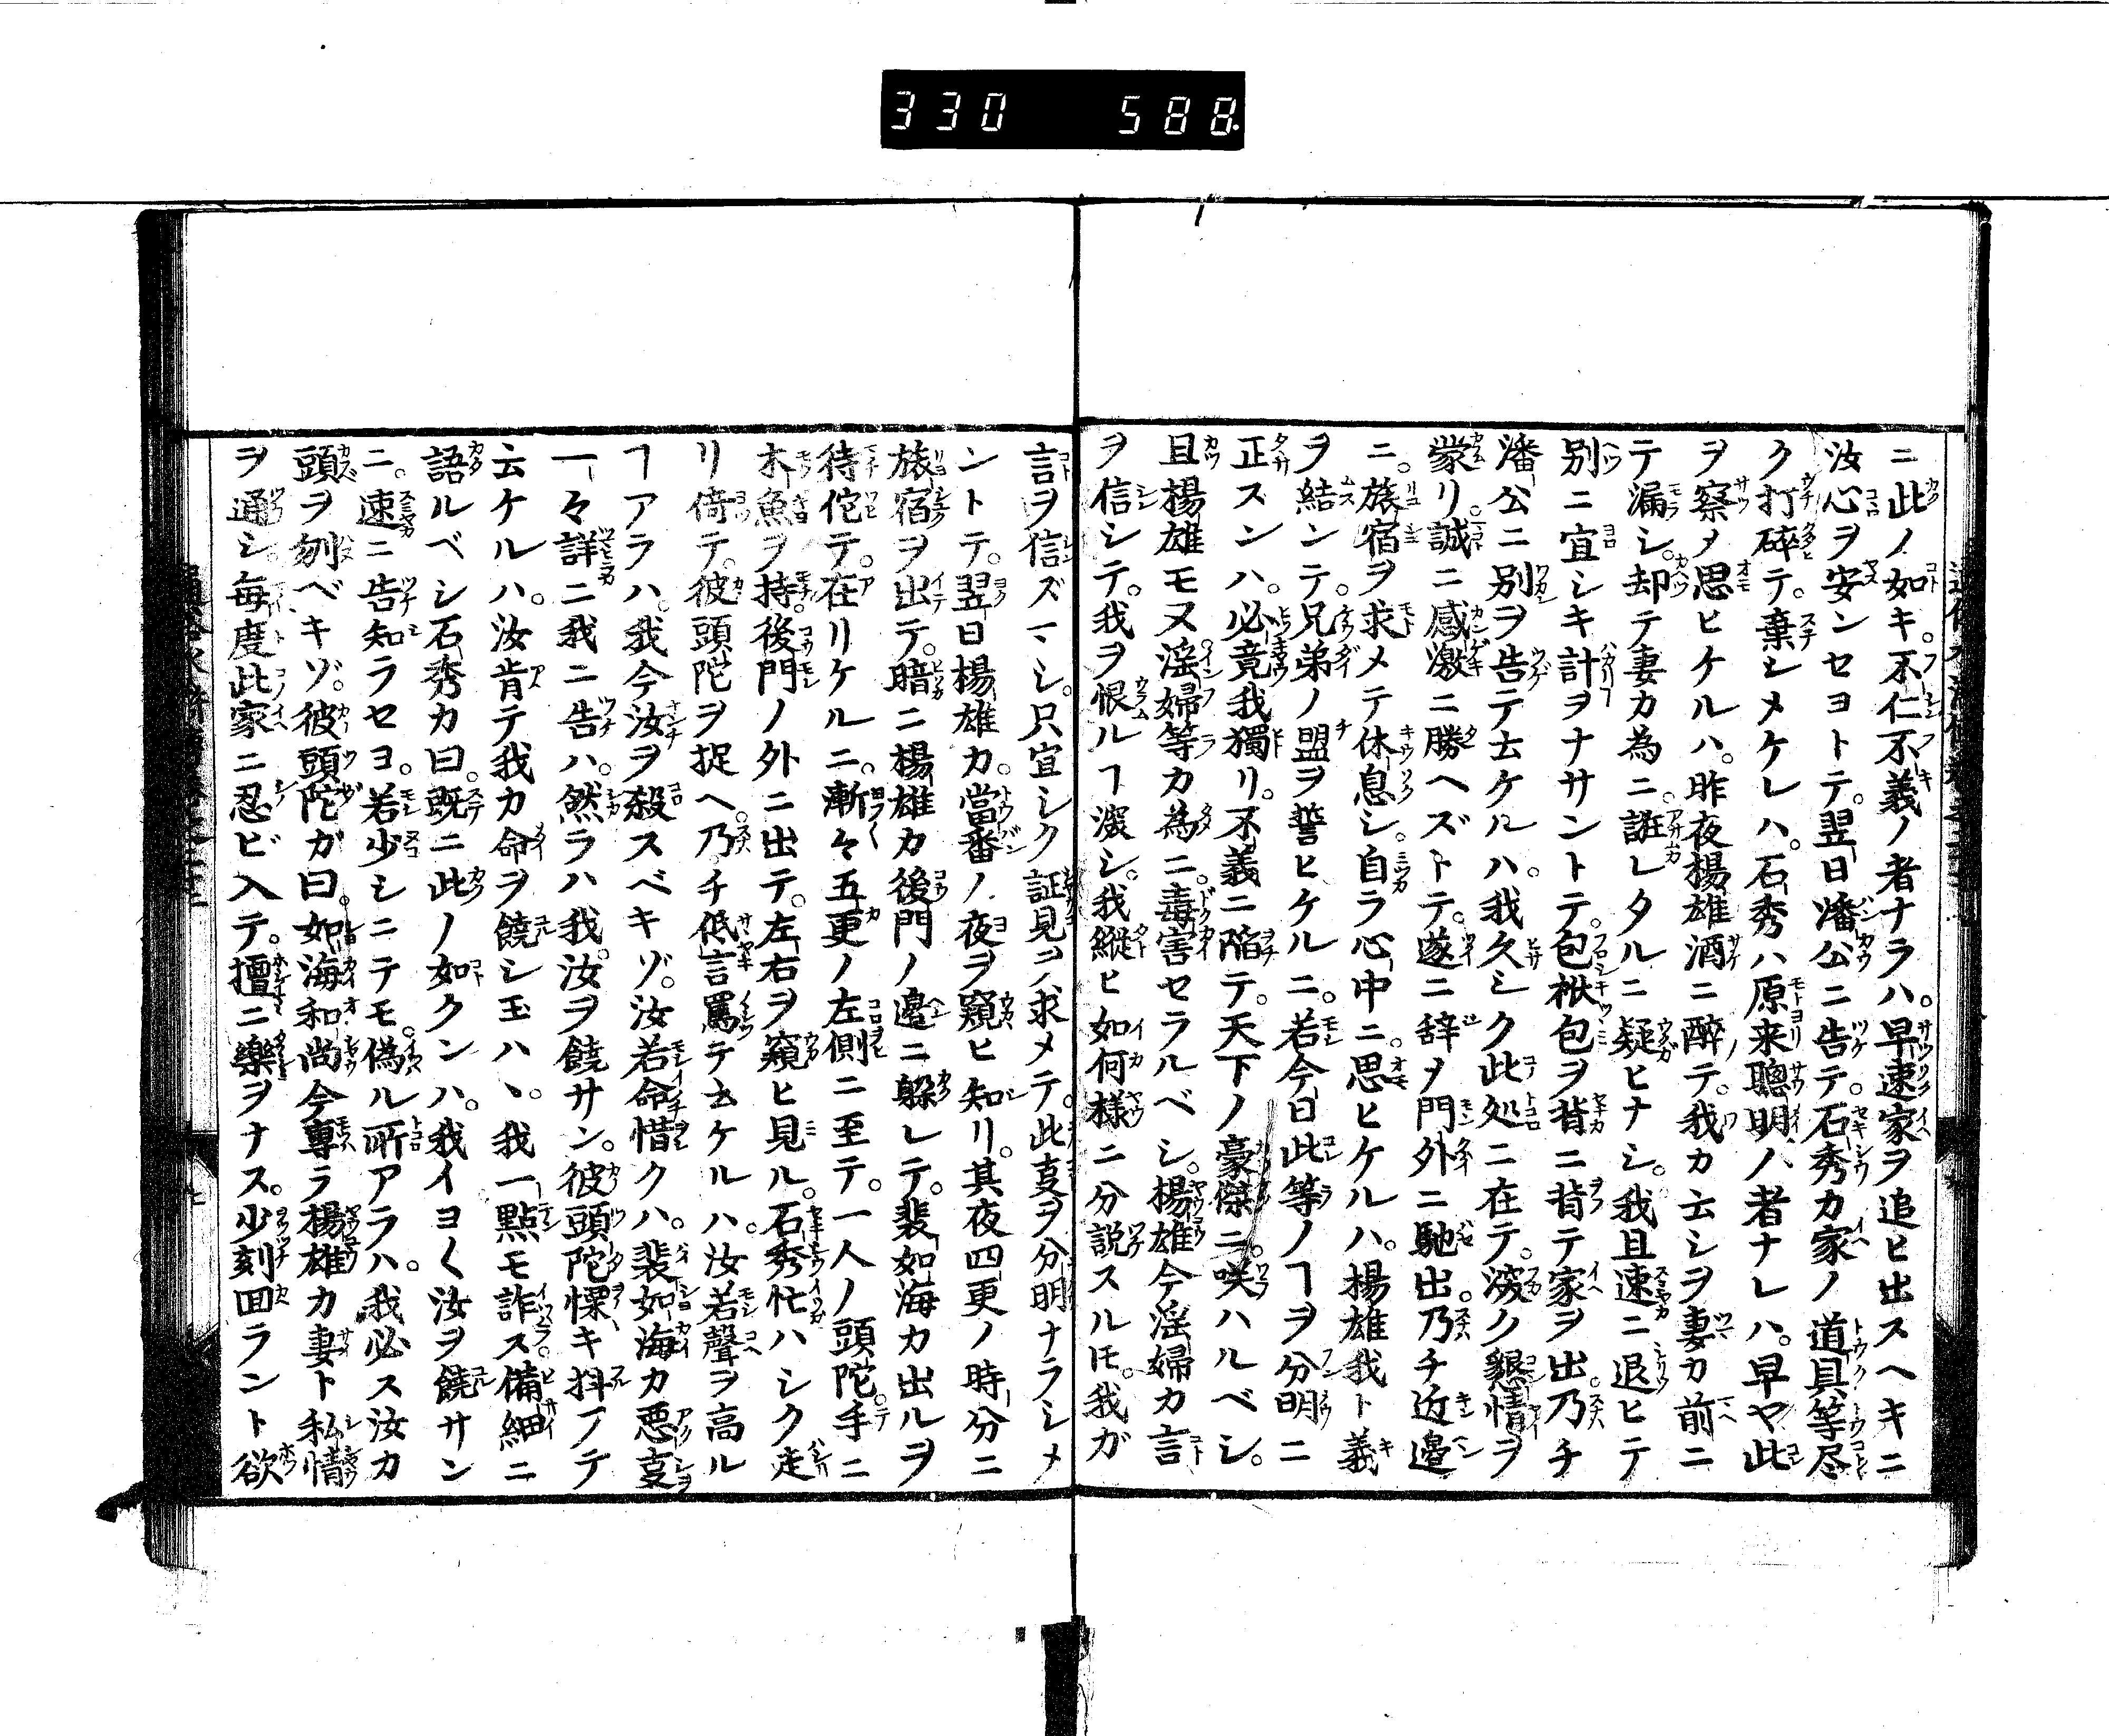 330 588
ニ此ノ如キ。不仁不義ノ者ナラハ。早速家ヲ追ヒ出スヘキニ
汝心ヲ安ンセヨトテ。翌日潘公ニ告テ。石秀カ家ノ道具等尽
ク打碎テ。棄シメケレハ。石秀ハ原来聰明ノ者ナレハ。早ヤ此
ヲ察メ思ヒケルハ。昨夜楊雄酒ニ醉テ。我カ云シヲ妻カ前ニ
テ漏シ。却テ妻カ為ニ。誑レタルニ疑ヒナシ。我且速ニ退ヒテ
別ニ宜シキ計ヲナサントテ。包袱包ヲ背ニ背テ家ヲ出。乃チ
潘公ニ別ヲ告テ云ケルハ。我久シク此処ニ在テ。深ク懇情ヲ
蒙リ。誠ニ感激ニ勝ヘズトテ。遂ニ辞メ門外ニ馳出。乃チ近邉
ニ。旅宿ヲ求メテ休息シ。自ラ心中ニ。思ヒケルハ。楊雄我ト義
ヲ結ンテ。兄弟ノ盟ヲ誓ヒケルニ。若今日此等ノヿヲ分明ニ
正スンハ。必竟我獨リ。不義ニ陥テ。天下ノ豪傑ニ。咲ハルベシ。
且楊雄モ又淫婦等カ為ニ。毒害セラルベシ。楊雄今淫婦カ言
ヲ信シテ。我ヲ恨ルヿ深シ。我縦ヒ如何様ニ分説スルモ。我ガ
言ヲ信ズマシ。只宜シク証見ヲ求メテ。此夏ヲ分明ナラシメ
ントテ。翌日楊雄カ。當番ノ夜ヲ窺ヒ知リ。其夜四更ノ時分ニ
旅宿ヲ出テ。暗ニ楊雄カ後門ノ邉ニ躱レテ。裴如海カ出ルヲ
待佗テ。在リケルニ。漸々五更ノ左側ニ至テ。一人ノ頭陀。手ニ
木魚ヲ持。後門ノ外ニ出テ。左右ヲ窺ヒ見ル。石秀忙ハシク走
リ倚テ。彼頭陀ヲ捉ヘ。乃チ低言罵テ云ケルハ。汝若聲ヲ高ル
ヿアラハ。我今汝ヲ殺スベキゾ。汝若命惜クハ。裴如海カ悪夏
一々詳ニ我ニ告ハ。然ラハ我。汝ヲ饒サン。彼頭陀慄キ抖フテ
云ケルハ。汝肯テ我カ命ヲ饒シ玉ハヽ。我一點モ詐ス。備細ニ
語ルベシ石秀カ曰。既ニ此ノ如クンハ。我イヨ〱汝ヲ饒サン
ニ。速ニ告知ラセヨ。若少シニテモ。偽ル所アラハ。我必ス汝カ
頭ヲ刎ベキゾ。彼頭陀ガ曰。如海和尚今專ラ楊雄カ妻ト私情
ヲ通シ。毎度此家ニ忍ビ入テ。擅ニ樂ヲナス。少刻回ラント欲